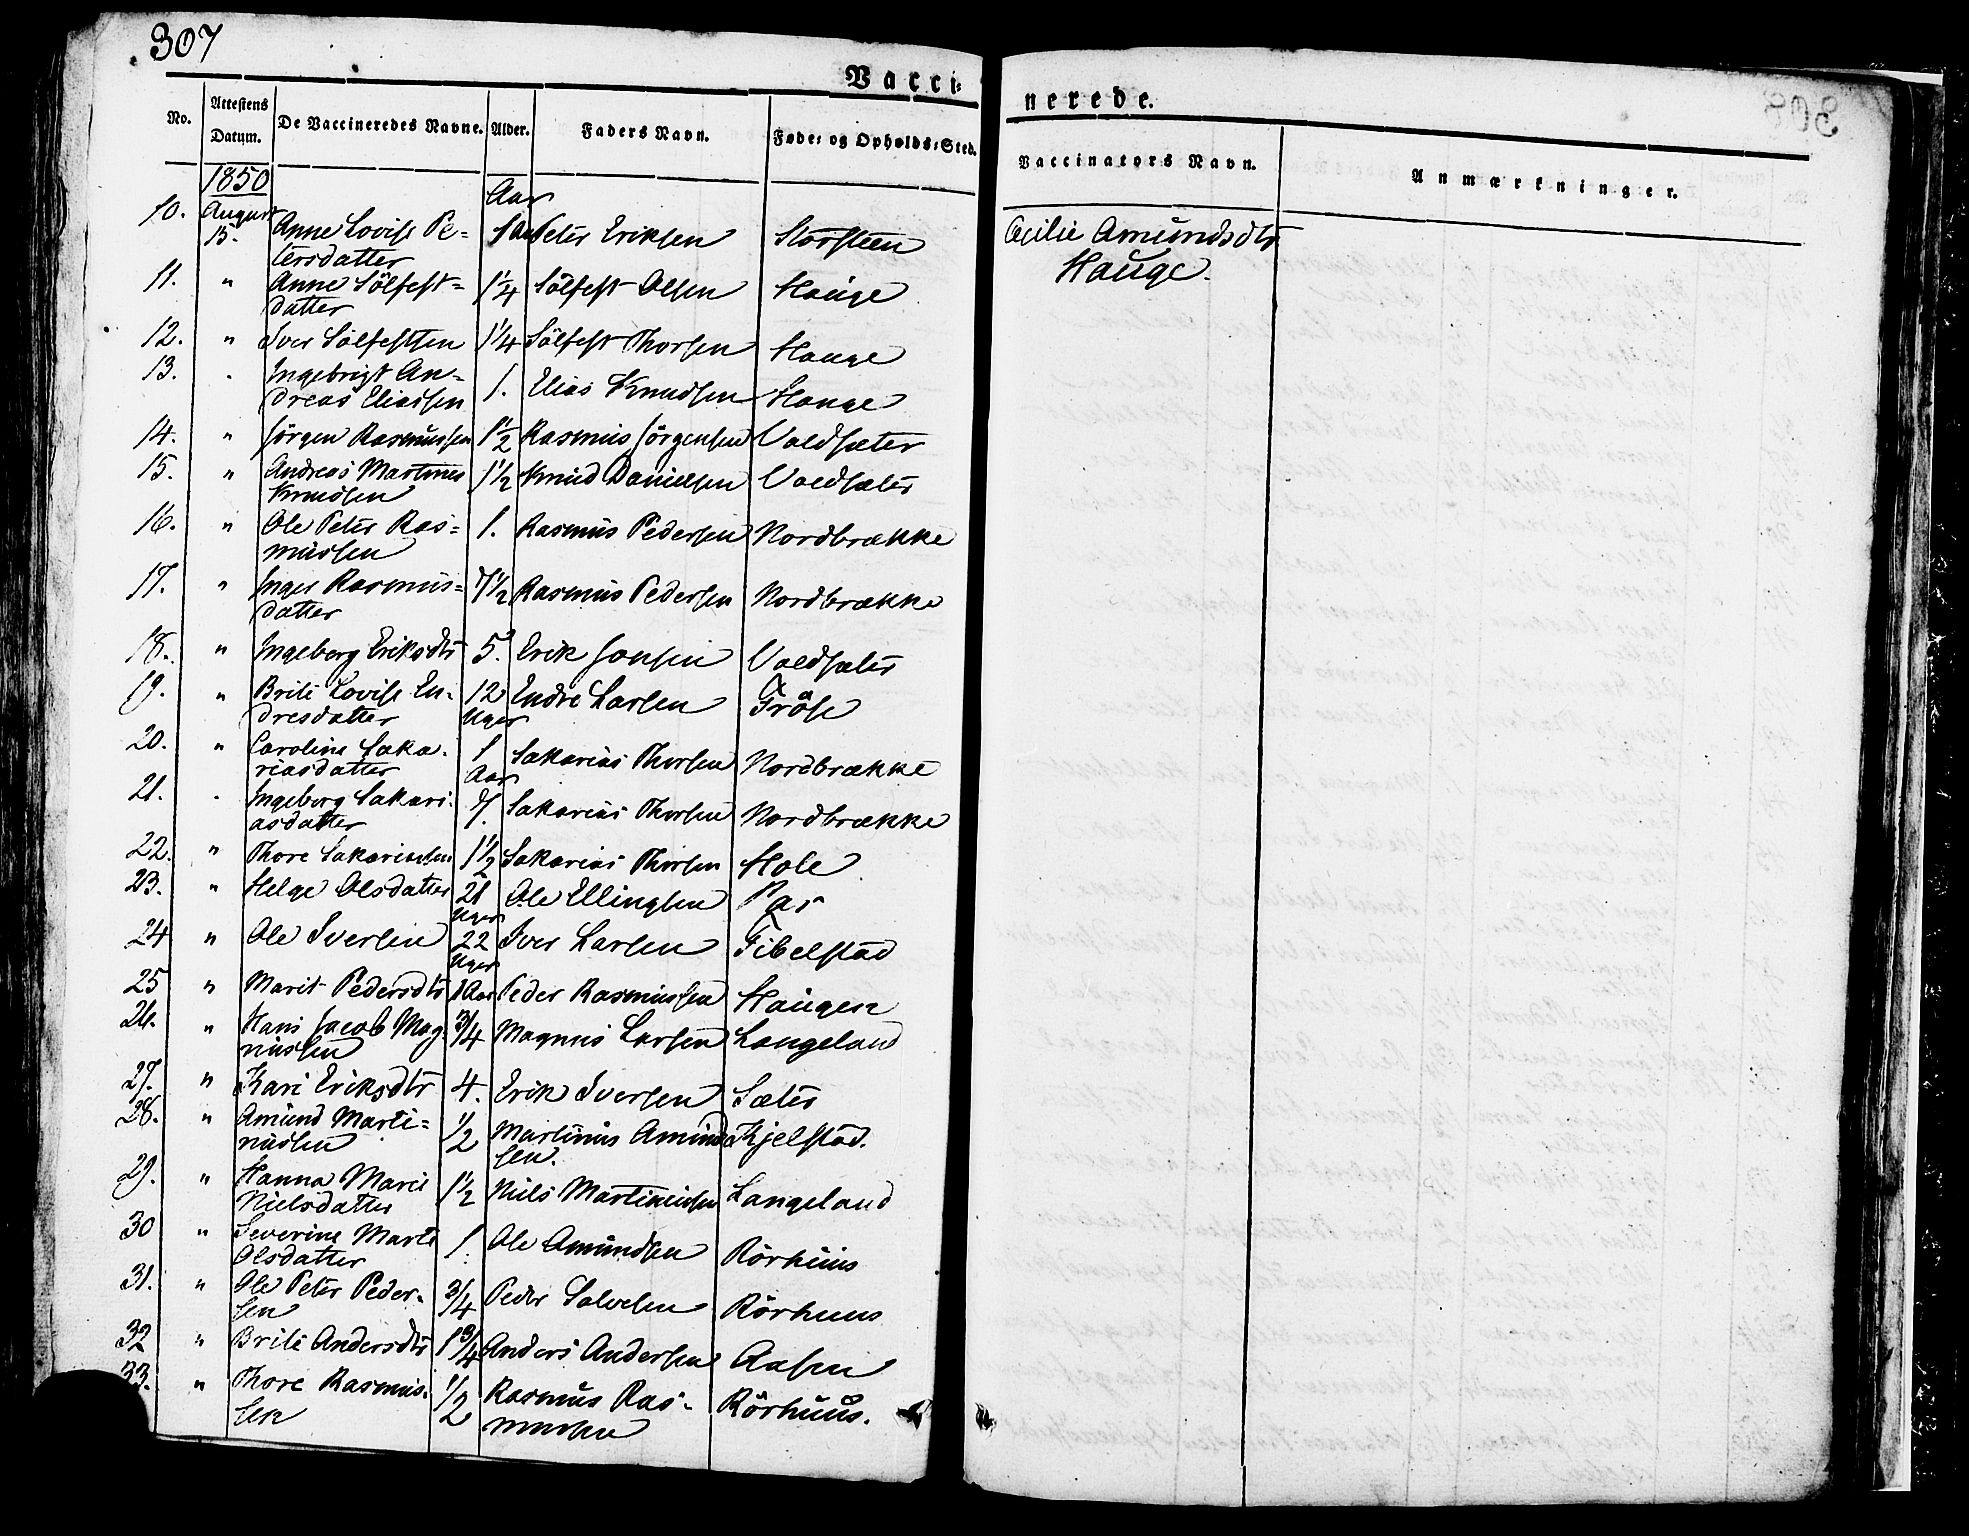 307
Vacci-
nerede.
No. Attestens Datum. De Vaccineredes Navne. Alder. Faders Navn. Føde- og Opholds-Sted. Vaccinators Navn. Anmærkninger.
1850 Aar
10. August 15. Anne Lovise Pe- 1 Aar Peter Eriksen Storsteen Cicilie Amundsdtr
tersdatter Hauge.
11. " Anne Sölfest- 1 1/4 Sölfest Olsen Hauge
datter
12. " Iver Sölfestsen 1 1/4 Sölfest Thorsen Hauge
13. " Ingebrigt An- 1. Elias Knudsen Hauge
dreas Eliassen
14. " Jörgen Rasmussen 1 1/2 Rasmus Jörgensen Voldsæter
15. " Andreas Martinus 1 1/2 Knud Danielsen Voldsæter
Knudsen
16. " Ole Peter Ras- 1. Rasmus Pedersen Nordbrække
mussen
17. " Inger Rasmus- 7 1/2 Rasmus Pedersen Nordbrække
datter
18. " Ingeborg Eriksdtr 5. Erik Jonsen Voldsæter
19. " Brite Lovise En- 12 Endre Larsen
dresdatter Uger
20. " Caroline Saka- 1 Sakarias Thorsen Nordbrække
riasdatter Aar
21. " Ingeborg Sakari- 7. Sakarias Thorsen Nordbrække
asdatter
22. " Thore Sakariassen 1 1/2 Sakarias Thorsen Hole
23. " Helge Olsdatter 21 Ole Ellingsen
Uger
24 " Ole Iversen 22 Iver Larsen
Uger
25 " Marit Pedersdtr 1 Aar Peder Rasmussen Haugen
26. " Hans Jacob Mag- 3/4 Magnus Larsen Langeland
nussen
27. " Kari Eriksdtr 4. Erik Iversen Sæter
28. " Amund Marti- 1/2 Martinus Amund Kjelstad.
nussen sen.
29. " Hanna Marie 1 1/2 Niels Martinussen Langeland
Nielsdatter
30 " Severine Marte 1. Ole Amundsen Rörhuus
Olsdatter
31. " Ole Peter Peder- 3/4 Peder Salvesen Rörhuus
sen
32 " Brite Andersdtr 1 3/4 Anders Andersen Aasen
33. " Thore Rasmus- 1/2 Rasmus Ras- Rörhuus.
sen mussen